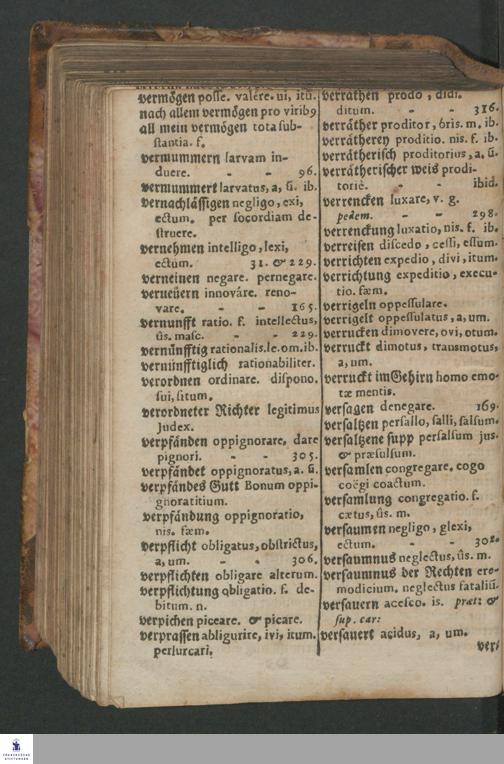 vermögen posse. valére. ui, itū.
nach allem vermögen pro virib9
all mein vermögen tota sub-
stantia. f.
vermummern larvam in-
duere. - - 96.
vermummert larvatus, a, ū. ib.
vernachlässigen negligo, exi,
ectum. per socordiam de-
struere.
vernehmen intelligo, lexi,
ectúm. 31. & 229.
verneinen negare. pernegare.
verneüern innováre. reno-
vare. - - 165.
vernunfft ratio. f. intellectus,
ûs. masc. - - 229.
vernünfftig rationalis. le. om. ib.
vernünfftiglich rationabiliter.
verordnen ordinare. dispono.
sui, situm.
verordneter Richter legitimus
judex.
verpfänden oppignorare, dare
pignori. - - 305.
verpfändet oppignoratus, a. ū.
verpfändes Gutt Bonum oppi-
gnoratitium.
verpfändung oppignoratio,
nis. fæm.
verpflicht obligatus, obstrictus,
a, um. - - 306.
verpflichten obligare alterum.
verpflichtung obligatio. f. de-
bitum. n.
verpichen piceare. & picare.
verprassen abligurire, ivi, itum.
perlurcari.
verrathen prodo, didi.
ditum. - - 316.
verräther proditor, óris. m. ib.
verrätherey proditio. nis. f. ib.
verrätherisch proditorius, a. ū.
verrätherischer weis prodi-
toriè. - - ibid.
verrencken luxare, v. g.
pedem. - - 298.
verrenckung luxatio, nis. f. ib.
verreisen discedo, cessi, essum.
verrichten expedio, divi, itum.
verrichtung expeditio, execu-
tio. fæm.
verrigeln oppessulare.
verrigelt oppessulatus, a, um.
verrucken dimovere, ovi, otum.
verruckt dimotus, transmotus,
a, um.
verruckt im Gehirn homo emo-
tæ mentis.
versagen denegare. 169.
versaltzen persallo, salli, salsum.
versaltzene supp persalsum jus.
& præsulsum.
versamlen congregare. cogo
coëgi coactum.
versamlung congregatio. f.
cætus, ûs. m.
versaumen negligo, glexi,
ectum. - - 302.
versaumnus neglectus, ûs. m.
versaumnus der Rechten ere-
modicium. neglectus fataliū.
versauern acesco. is. præt: &
sup. car:
versauert acidus, a, um.
ver-